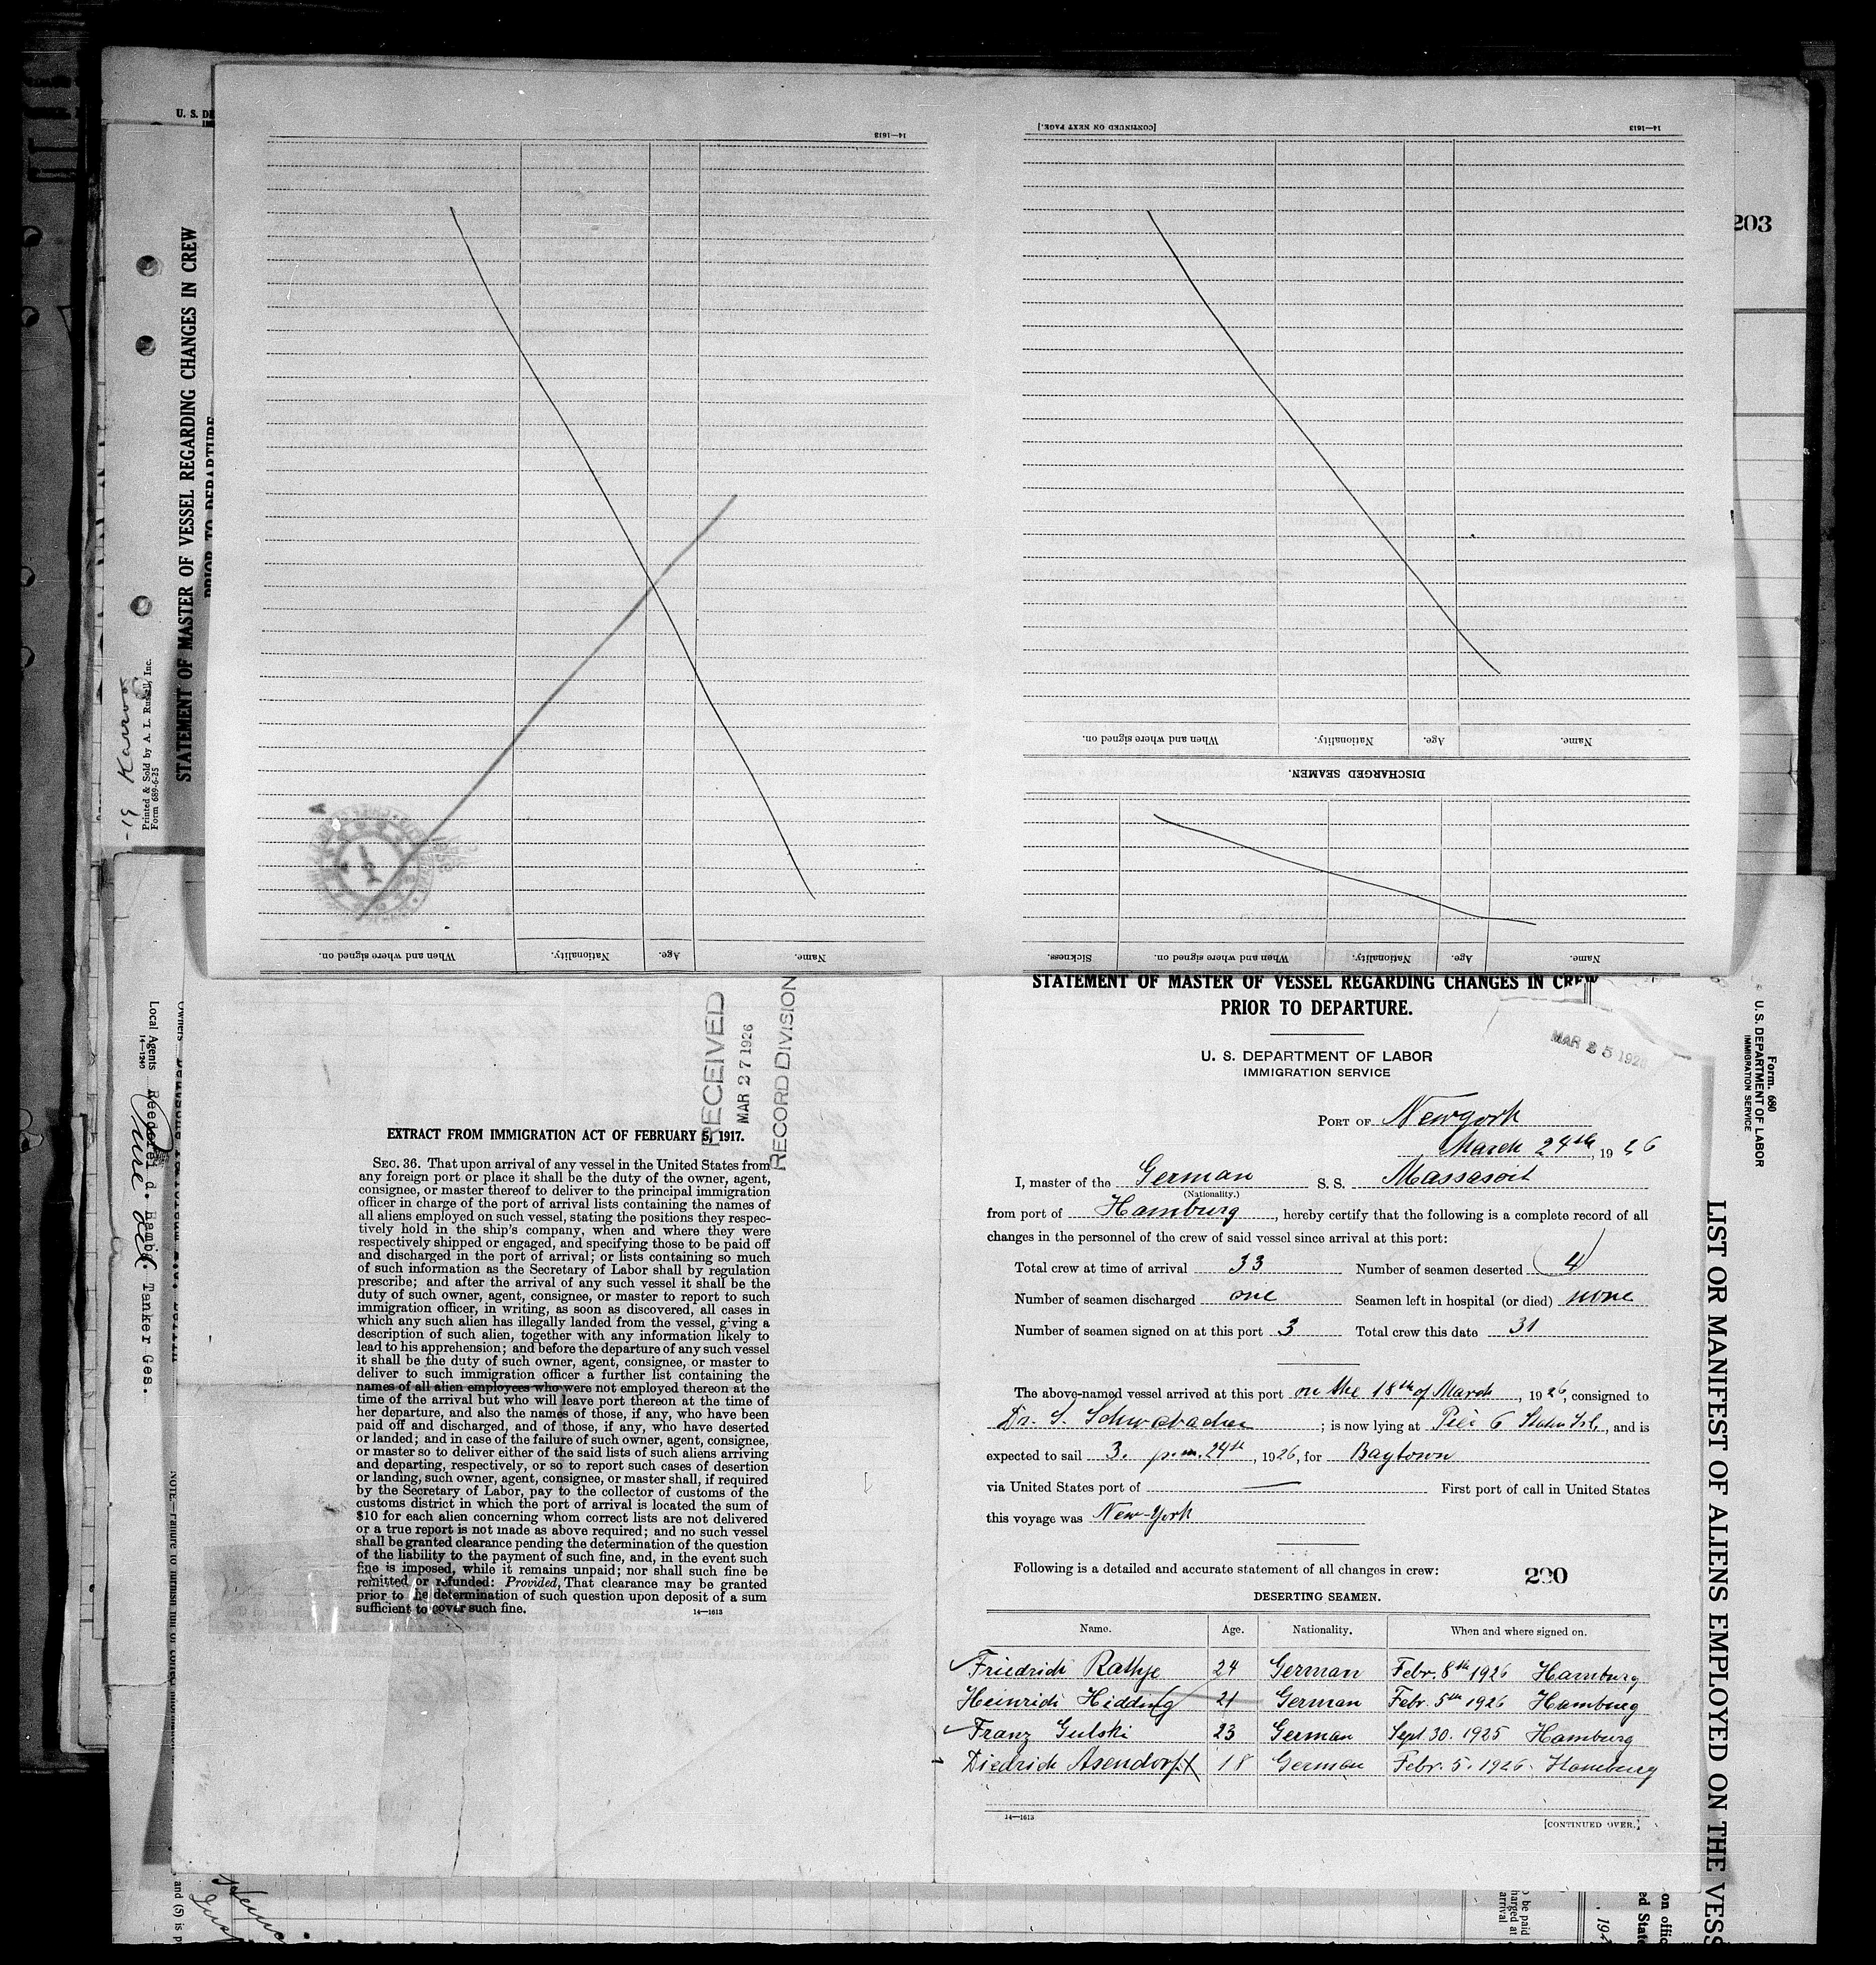 U. S. DE
203
14—1613
[CONTINUED ON NEXT PAGE.]
14—1613
STATEMENT OF MASTER OF VESSEL REGARDING CHANGES IN CREW
PRIOR TO DEPARTURE
Printed & Sold by A. L. Russell, Inc.
Form 689-6-25
When and where signed on.
Nationality.
Age.
Name.
DISCHARGED SEAMEN.
When and where signed on. Nationality. Age. Name.
Sickness. When and where signed on. Nationality. Age. Name.
RECEIVED
MAR 27 1926
RECORD DIVISION
EXTRACT FROM IMMIGRATION ACT OF FEBRUARY 5, 1917.
SEC. 36. That upon arrival of any vessel in the United States from
any foreign port or place it shall be the duty of the owner, agent,
consignee, or master thereof to deliver to the principal immigration
officer in charge of the port of arrival lists containing the names of
all aliens employed on such vessel, stating the positions they respec-
tively hold in the ship's company, when and where they were
respectively shipped or engaged, and specifying those to be paid off
and discharged in the port of arrival; or lists containing so much
of such information as the Secretary of Labor shall by regulation
prescribe; and after the arrival of any such vessel it shall be the
duty of such owner, agent, consignee, or master to report to such
immigration officer, in writing, as soon as discovered, all cases in
which any such alien has illegally landed from the vessel, giving a
description of such alien, together with any information likely to
lead to his apprehension; and before the departure of any such vessel
it shall be the duty of such owner, agent, consignee, or master to
deliver to such immigration officer a further list containing the
names of all alien employees who were not employed thereon at the
time of the arrival but who will leave port thereon at the time of
her departure, and also the names of those, if any, who have been
paid off and discharged, and of those, if any, who have deserted
or landed; and in case of the failure of such owner, agent, consignee,
or master so to deliver either of the said lists of such aliens arriving
and departing, respectively, or so to report such cases of desertion
or landing, such owner, agent, consignee, or master shall, if required
by the Secretary of Labor, pay to the collector of customs of the
customs district in which the port of arrival is located the sum of
$10 for each alien concerning whom correct lists are not delivered
or a true report is not made as above required; and no such vessel
shall be granted clearance pending the determination of the question
of the liability to the payment of such fine, and, in the event such
fine is imposed, while it remains unpaid; nor shall such fine be
remitted or refunded: Provided, That clearance may be granted
prior to the determination of such question upon deposit of a sum
sufficient to cover such fine.
14—1613
STATEMENT OF MASTER OF VESSEL REGARDING CHANGES IN CREW
PRIOR TO DEPARTURE.
MAR 25 192
U. S. DEPARTMENT OF LABOR
IMMIGRATION SERVICE
PORT OF Newyork
March 24th, 1926
I, master of the German S. S. Massasoit
(Nationality.)
from port of Hamburg, hereby certify that the following is a complete record of all
changes in the personnel of the crew of said vessel since arrival at this port:
Total crew at time of arrival 33 Number of seamen deserted 4
Number of seamen discharged one Seamen left in hospital (or died) none
Number of seamen signed on at this port 3 Total crew this date 31
The above-named vessel arrived at this port on the 18th of March, 1926, consigned to
Dr. S. Schwabacher; is now lying at Peir 6 Staten Isl., and is
expected to sail 3. p.m. 24th, 1926, for Baytown
via United States port of — First port of call in United States
this voyage was New-York
Following is a detailed and accurate statement of all changes in crew:
200
DESERTING SEAMEN.
Name. Age. Nationality. When and where signed on.
Friedrich Rathje 24 German Febr. 8th 1926 Hamburg
Heinrich Hidding 21 German Febr. 5th 1926 Hamburg
Franz Gulski 23 German Sept. 30. 1925 Hamburg
Diedrich Asendorf 18 German Febr. 5. 1926. Hamburg
14—1613
[CONTINUED OVER.]
Form. 680
U. S. DEPARTMENT OF LABOR
IMMIGRATION SERVICE
LIST OR MANIFEST OF ALIENS EMPLOYED ON THE VESS
Owners
Local Agents
14—1240
Tanker Ges.
and (5) is p